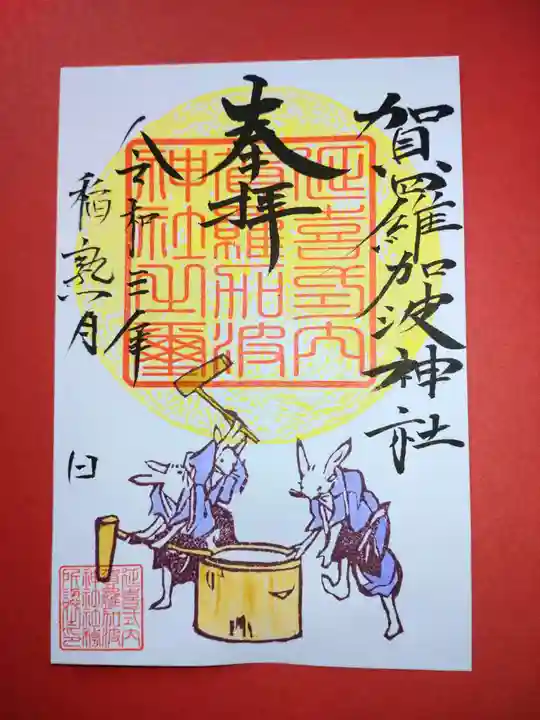 賀羅加波神社
奉拝
延喜式内
賀羅加波
神社之璽
令和三年
稲熟月
日
延喜式内
賀羅加波